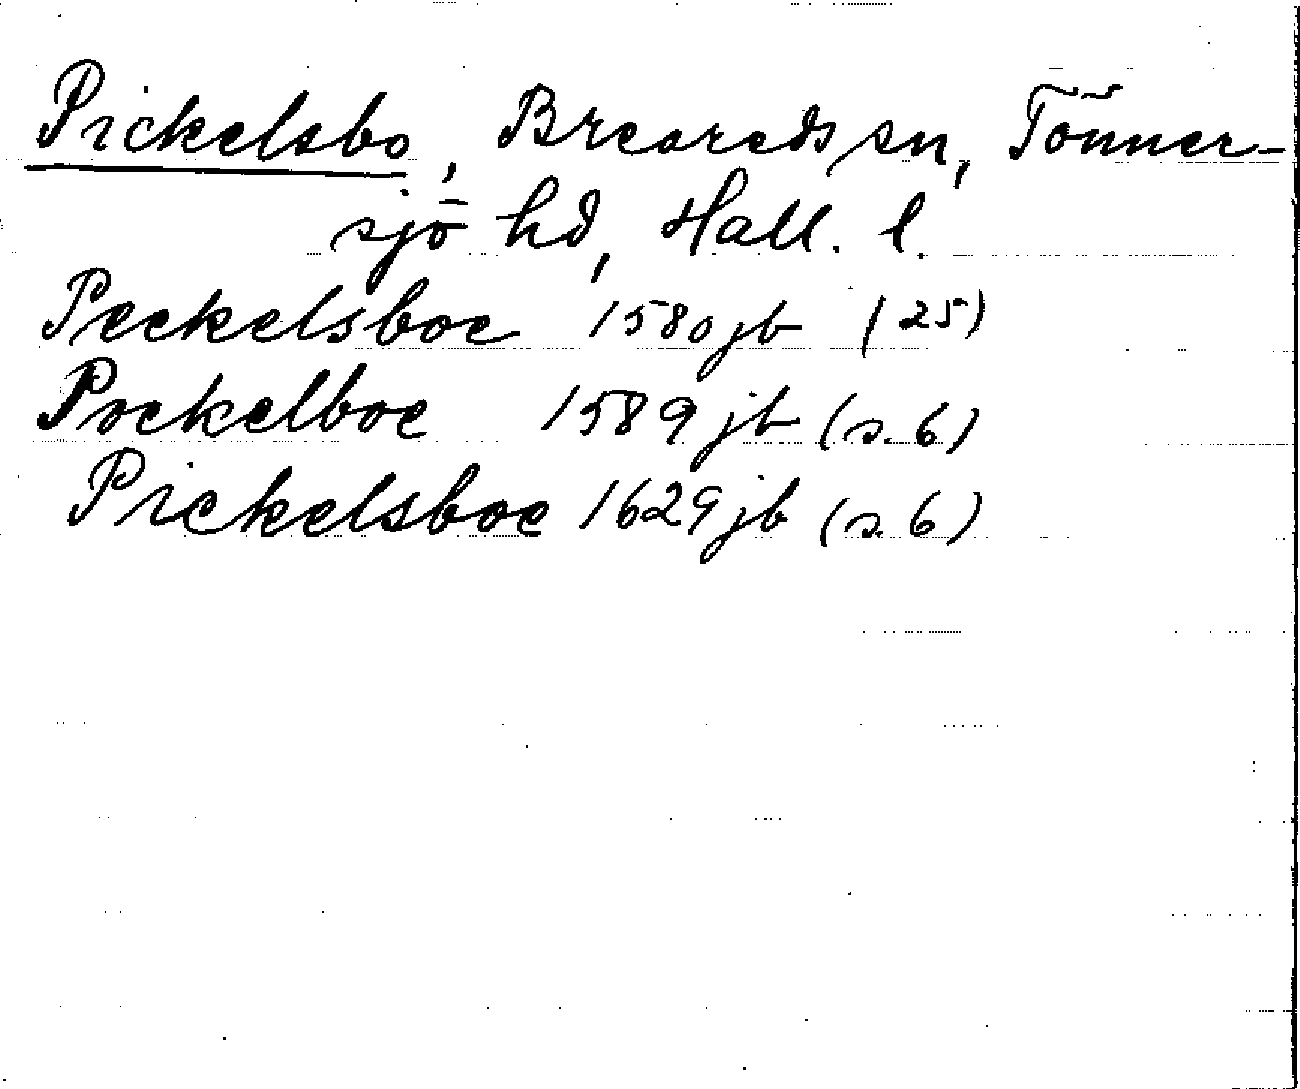 Pickelsbo, Breareds sn, Tönner-
sjö hd, Hall. l.
Peckelsboe 1580 jb (25)
Pockelboe 1589 jb (s. 6)
Pickelsboe 1629 jb (s. 6)